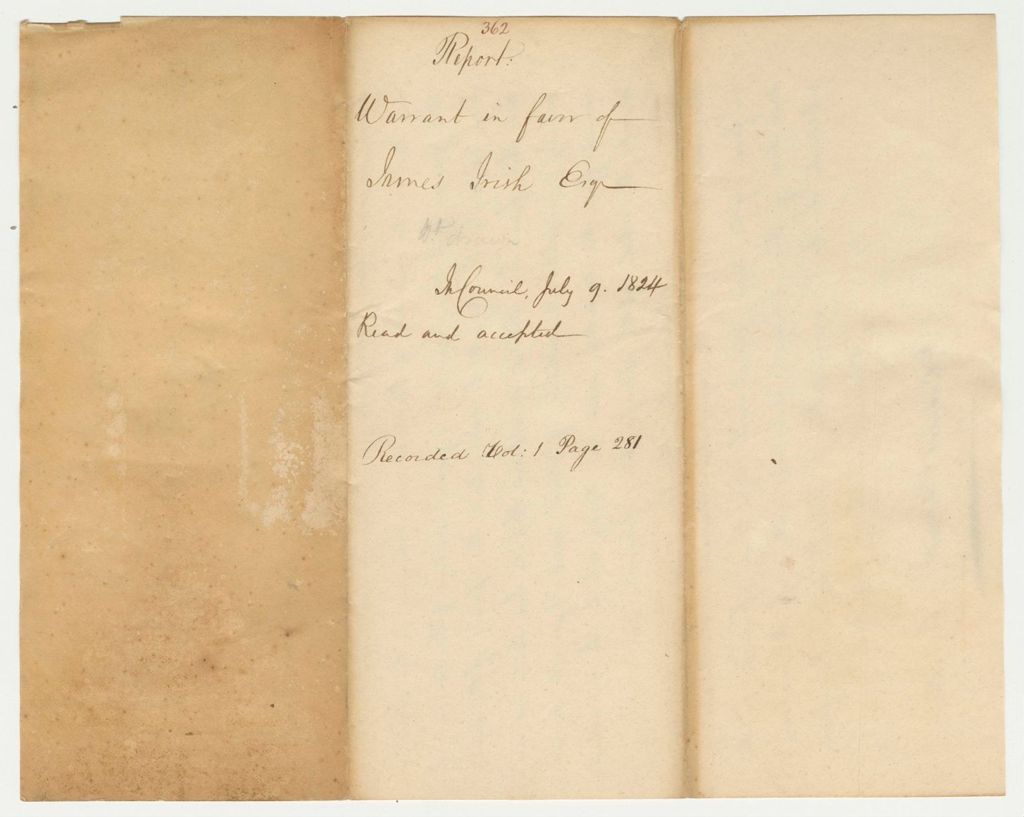 362
Report.
Warrant in favor of
James Irish Esqr
drawn
In Council, July 9. 1824
Read and accepted
Recorded Vol: 1 Page 281